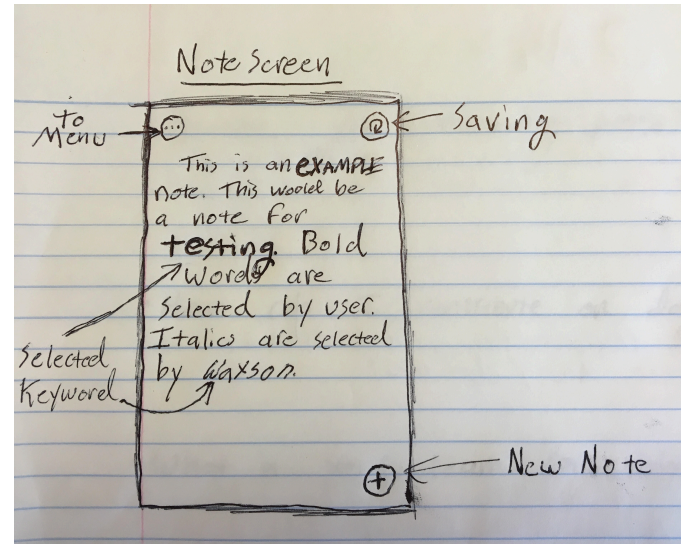 Note Screen
To
Menu
Saving
This is an EXAMPLE
note. This would be
a note for
testing. Bold
words are
Selected by user.
Italics are selected
by Waxson.
Selected
Keyword
+
New Note